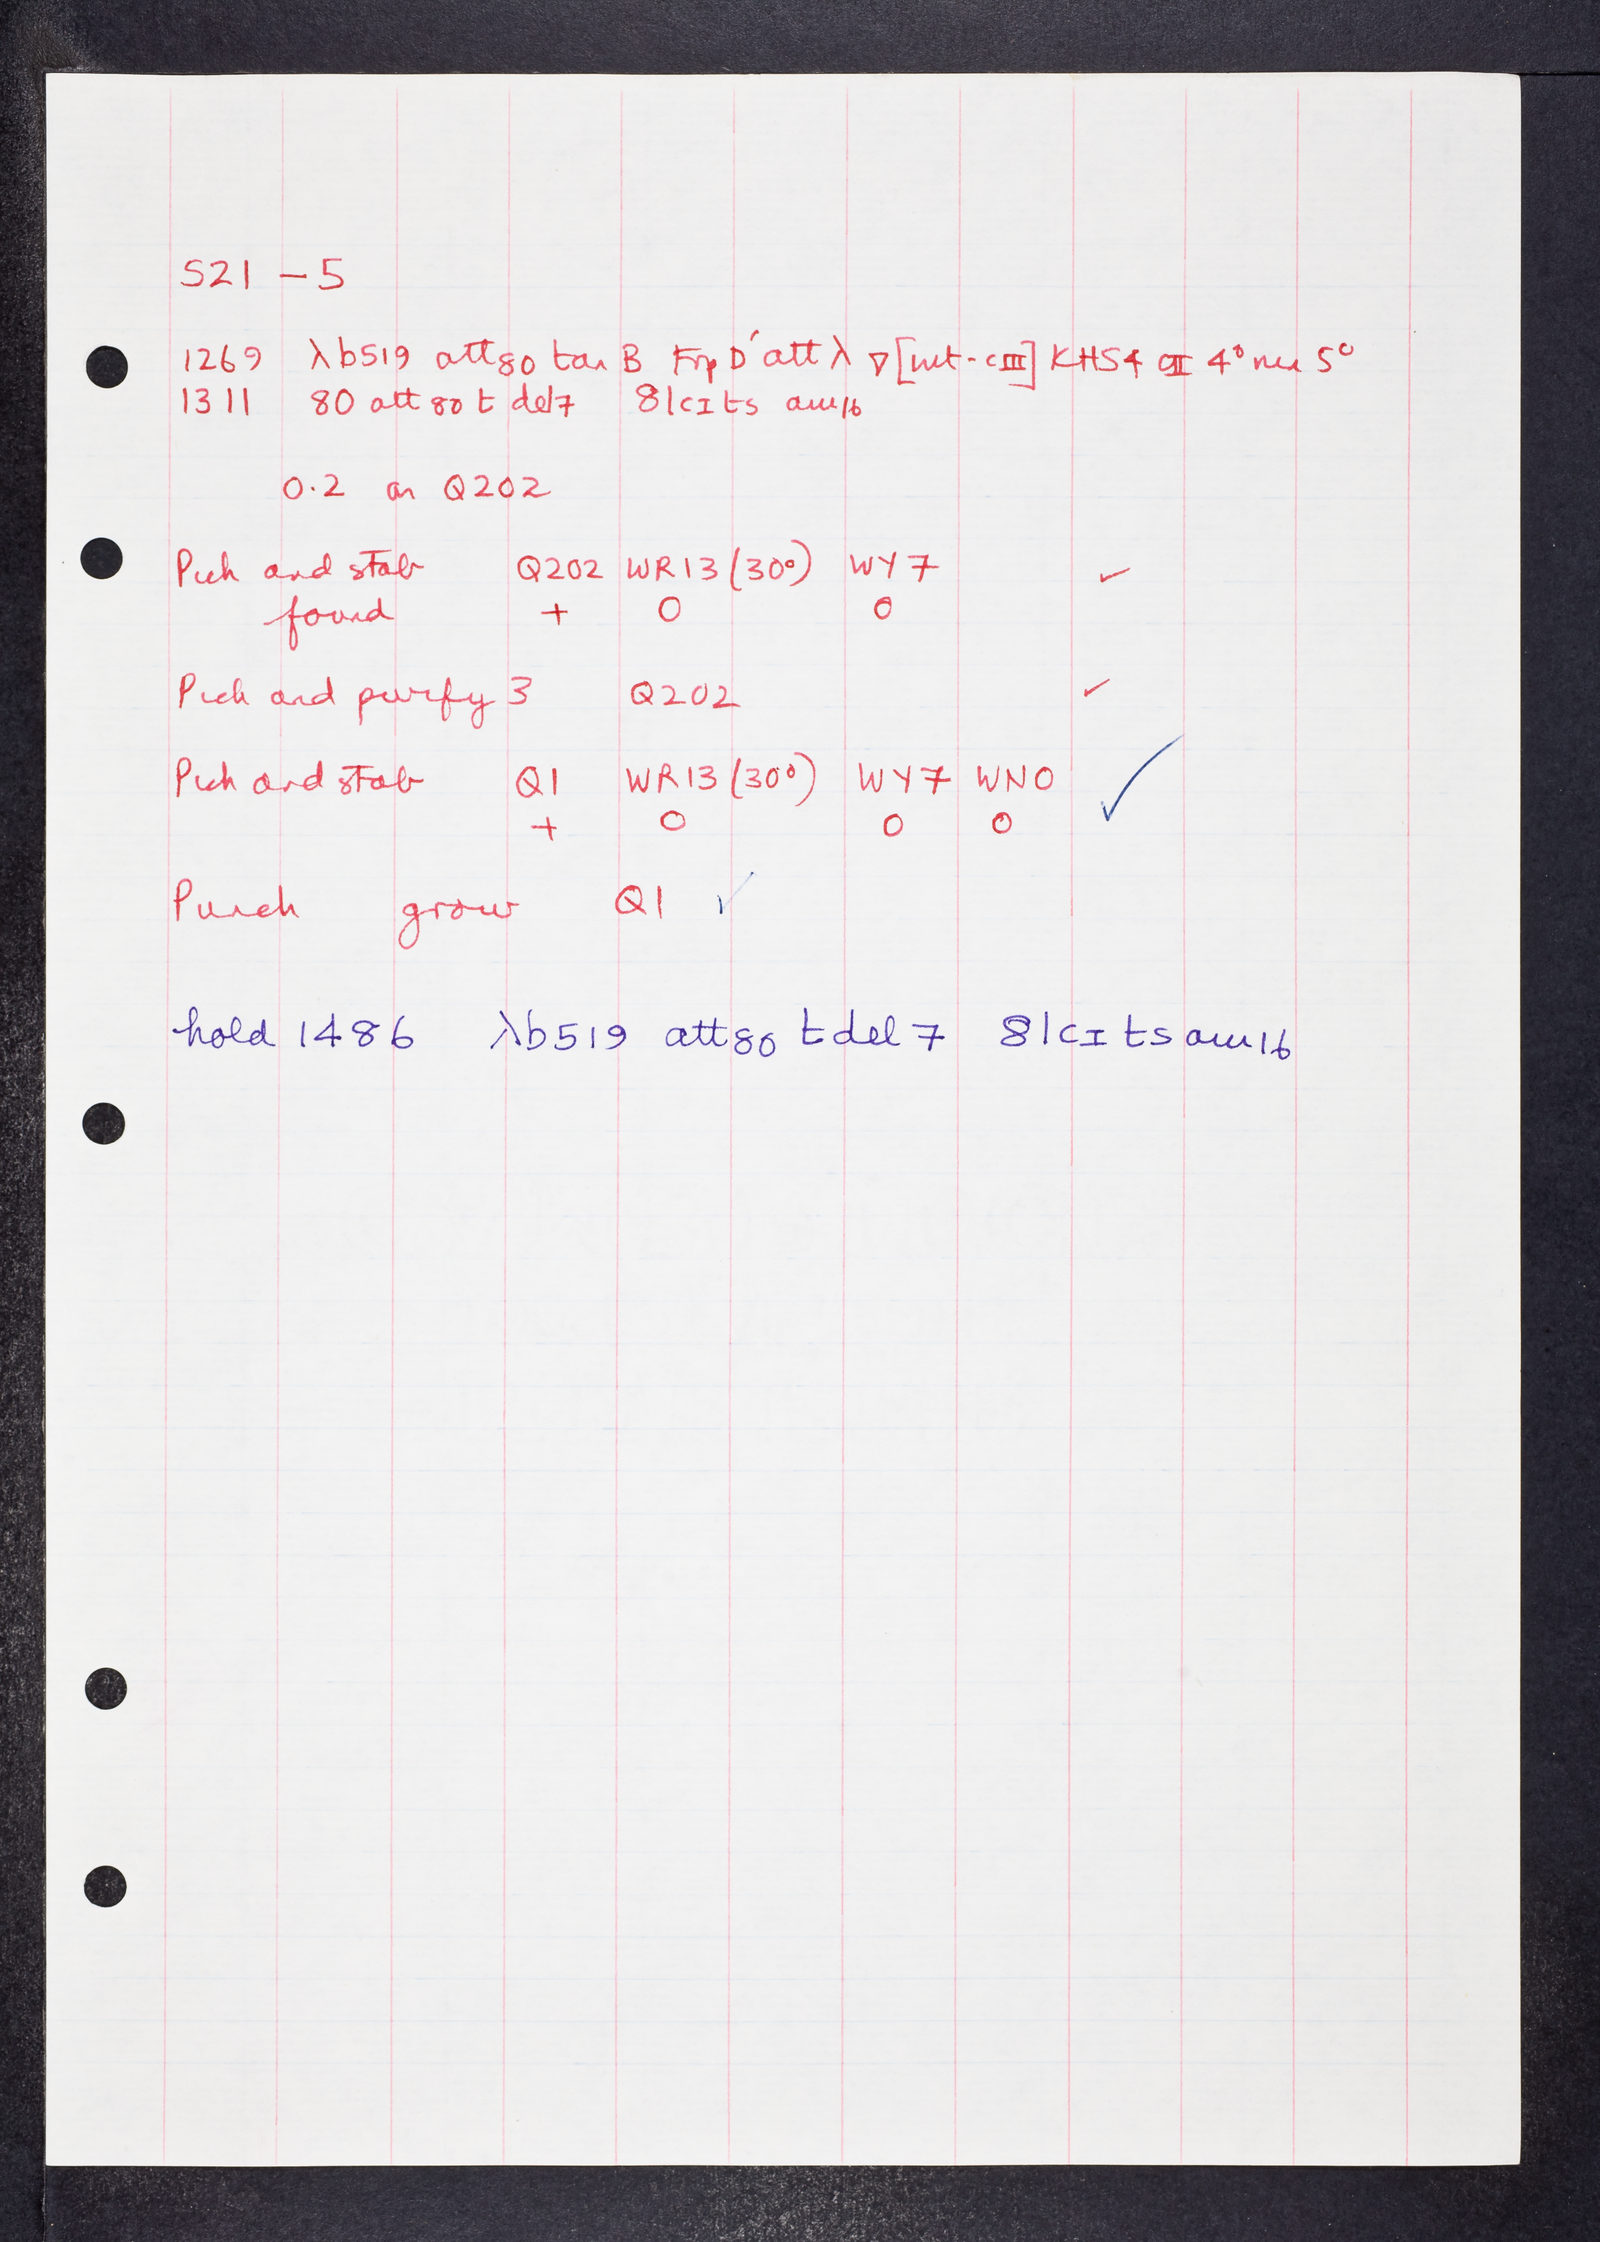 S21 – 5
1269 λb519 att80 ton B trp D' att λ ∇ [int-cIII] KH54 cII 4° nin 5°
1311 80 att80 t del7 81cI ts am16
0.2 on Q202
Pick and stab Q202 WR13 (30°) WY7 ✓
found + O O
Pick and purify 3 Q202 ✓
Pick and stab Q1 WR13 (30°) WY7 WNO ✓
+ O O O
Punch grow Q1 ✓
hold 1486 λb519 att80 t del 7 81cI ts am16